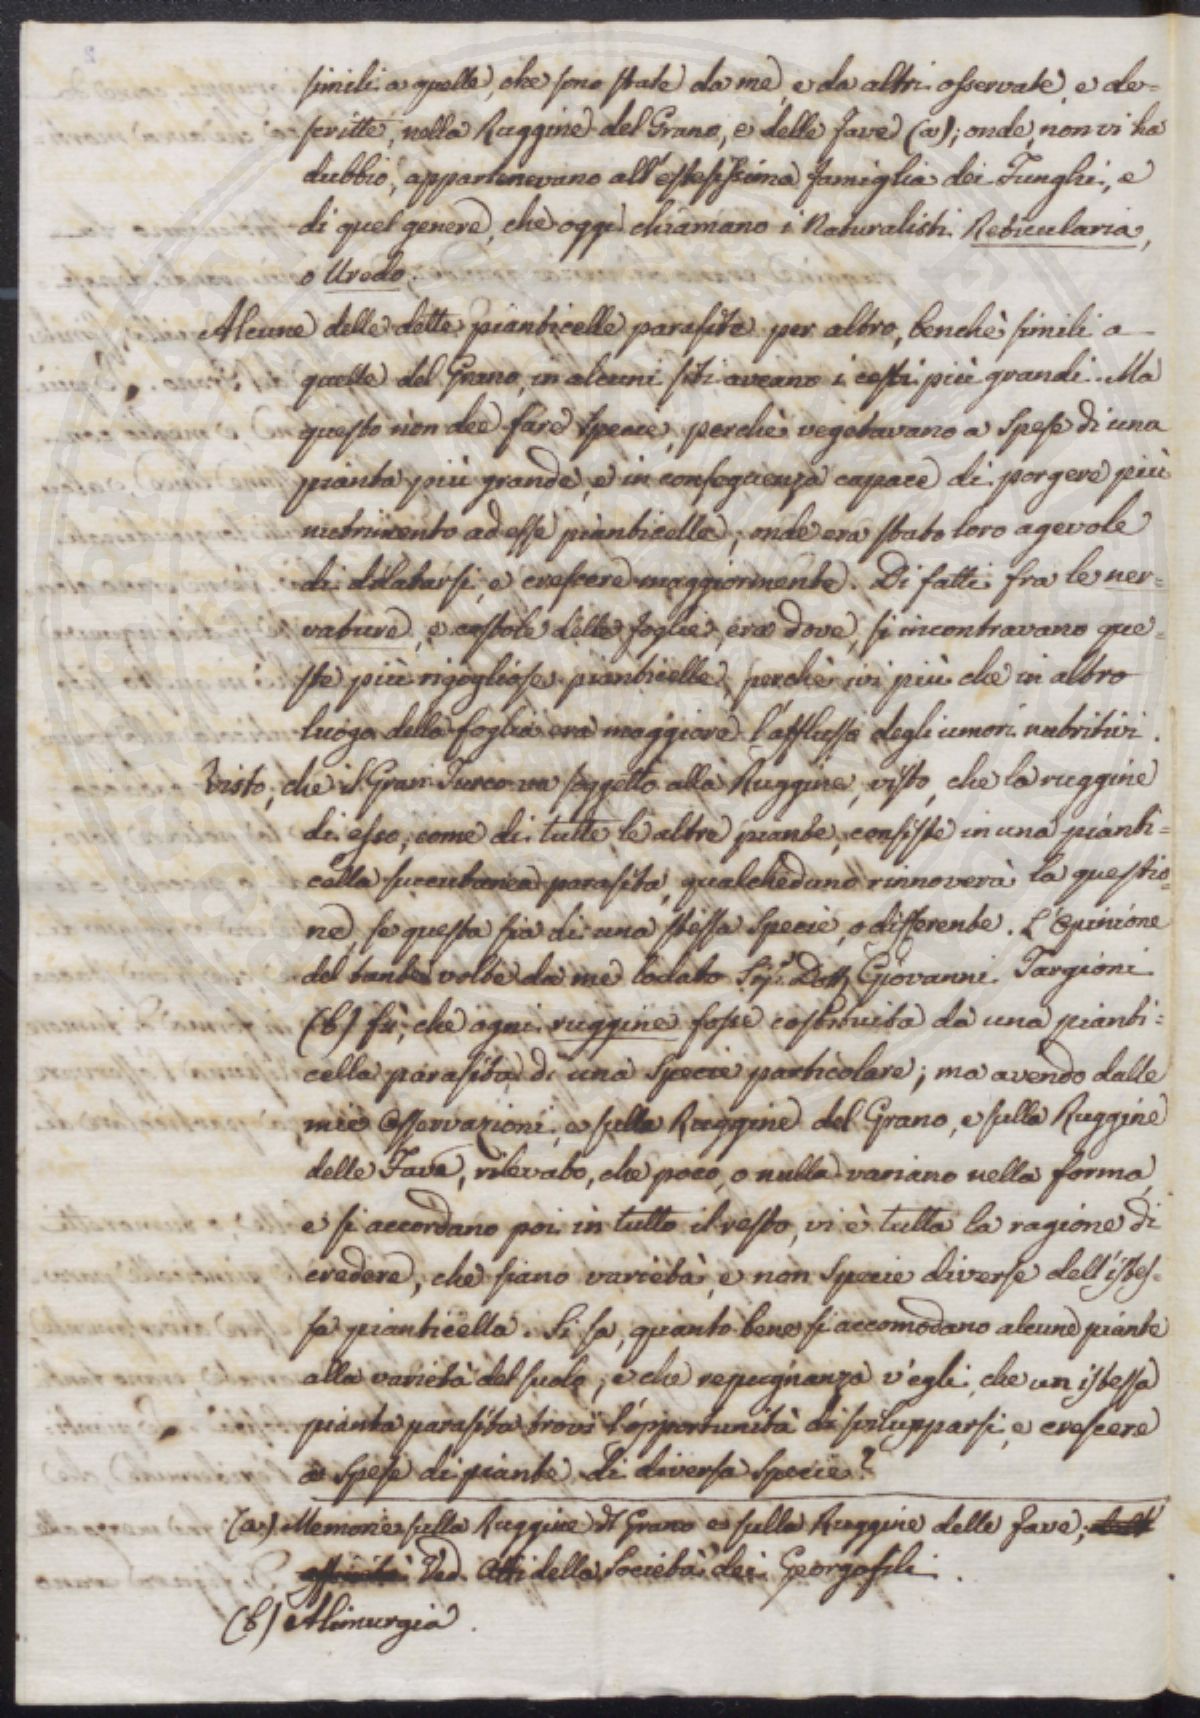 simili a quelle, che sono state da me, e da altri osservate, e de=
scritte, nella Ruggine del Grano, e delle fave (a); onde, non vi ha
dubbio, appartenevano all'estesissima famiglia dei Funghi, e
di quel genere, che oggi chiamano i Naturalisti Reticularia,
o Uredo.
Alcune delle dette pianticelle parasite per altro, benchè simili a
quelle del Grano, in alcuni siti aveano i cesti più grandi. Ma
questo non dee fare specie, perchè vegetavano a spese di una
pianta più grande, e in conseguenza capace di porgere più
nutrimento ad esse pianticelle; onde era stato loro agevole
di dilatarsi, e crescere maggiormente. Di fatti fra le ner=
vature, e costole delle foglie, era dove, si incontravano que=
ste più rigogliose pianticelle, perchè ivi più che in altro
luogo della foglia era maggiore l'afflusso degli umori nutritivi.
Visto, che il Gran Turco va soggetto alla Ruggine, visto, che la ruggine
di esso, come di tutte le altre piante, consiste in una pianti=
cella succutanea parasita, qualcheduno rinnoverà la questio=
ne, se questa sia di una stessa specie, o differente. L'Opinione
del tante volte da me lodato Sig.r Dott. Giovanni Targioni
(b) fù, che ogni ruggine fosse costruita da una pianti=
cella parasita di una specie particolare; ma avendo dalle
mie Osservazioni, e sulla Ruggine del Grano, e sulla Ruggine
delle Fave, rilevato, che poco, o nulla variano nella forma,
e si accordano poi in tutto il resto, vi è tutta la ragione di
credere, che siano varietà, e non specie diverse dell'istes=
sa pianticella. Si sa, quanto bene si accomodano alcune piante
alla varietà del suolo; e che repugnanza v'egli, che un istessa
pianta parasita trovi l'opportunità di svilupparsi, e crescere
a spese di piante di diversa specie?
(a) Memorie sulla Ruggine del Grano e sulla Ruggine delle fave;
Ved. Atti della Società dei Georgofili.
(b) Alimurgia.